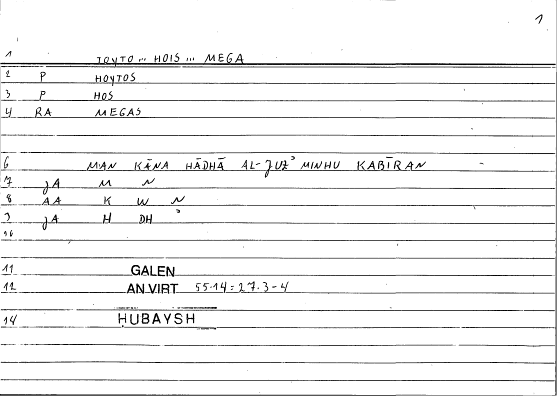 1
1 TOYTO ... HOIS ... MEGA
2 P HOYTOS
3 P HOS
4 RA MEGAS
6 MAN KĀNA HĀDHĀ AL-JUZʾ MINHU KABĪRAN
7 JA M N
8 AA K W N
9 JA H DH ʾ
10
11 GALEN
12 AN VIRT 55.14 = 27.3-4
14 HUBAYSH